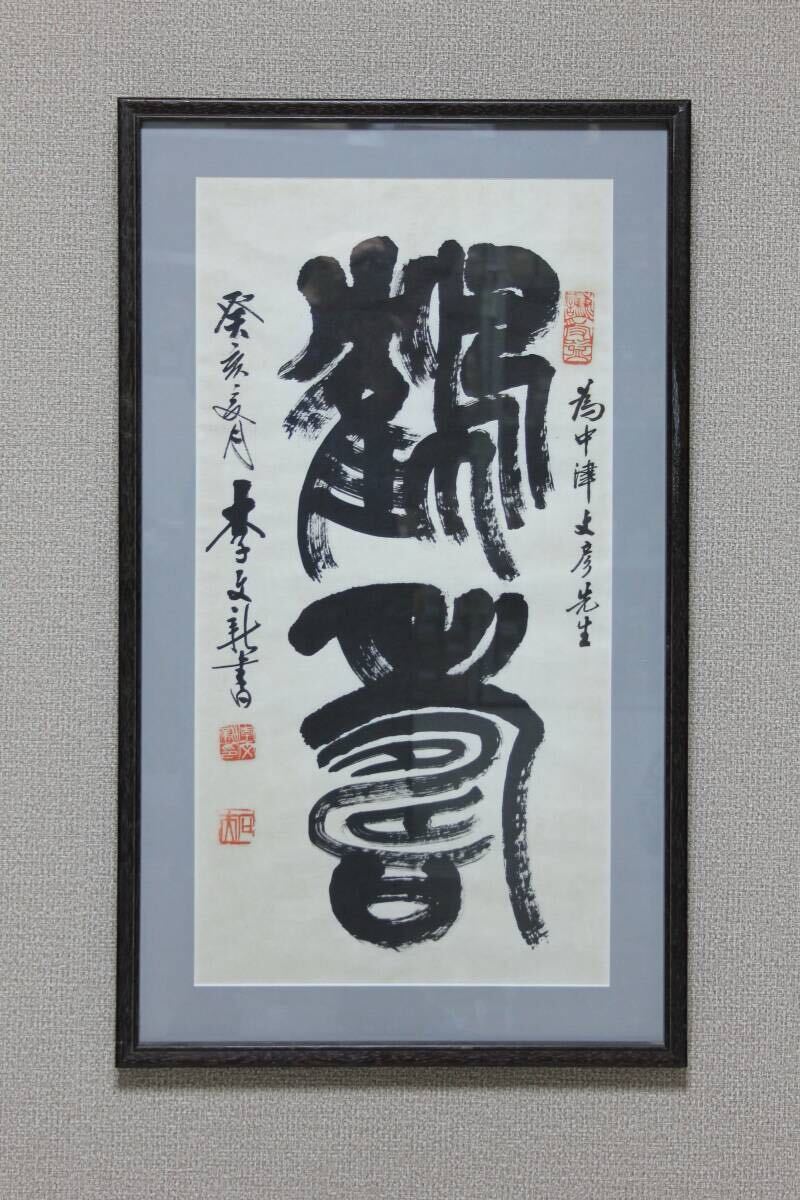 為中津文彦先生
鶴壽
癸亥夏月
李文新書